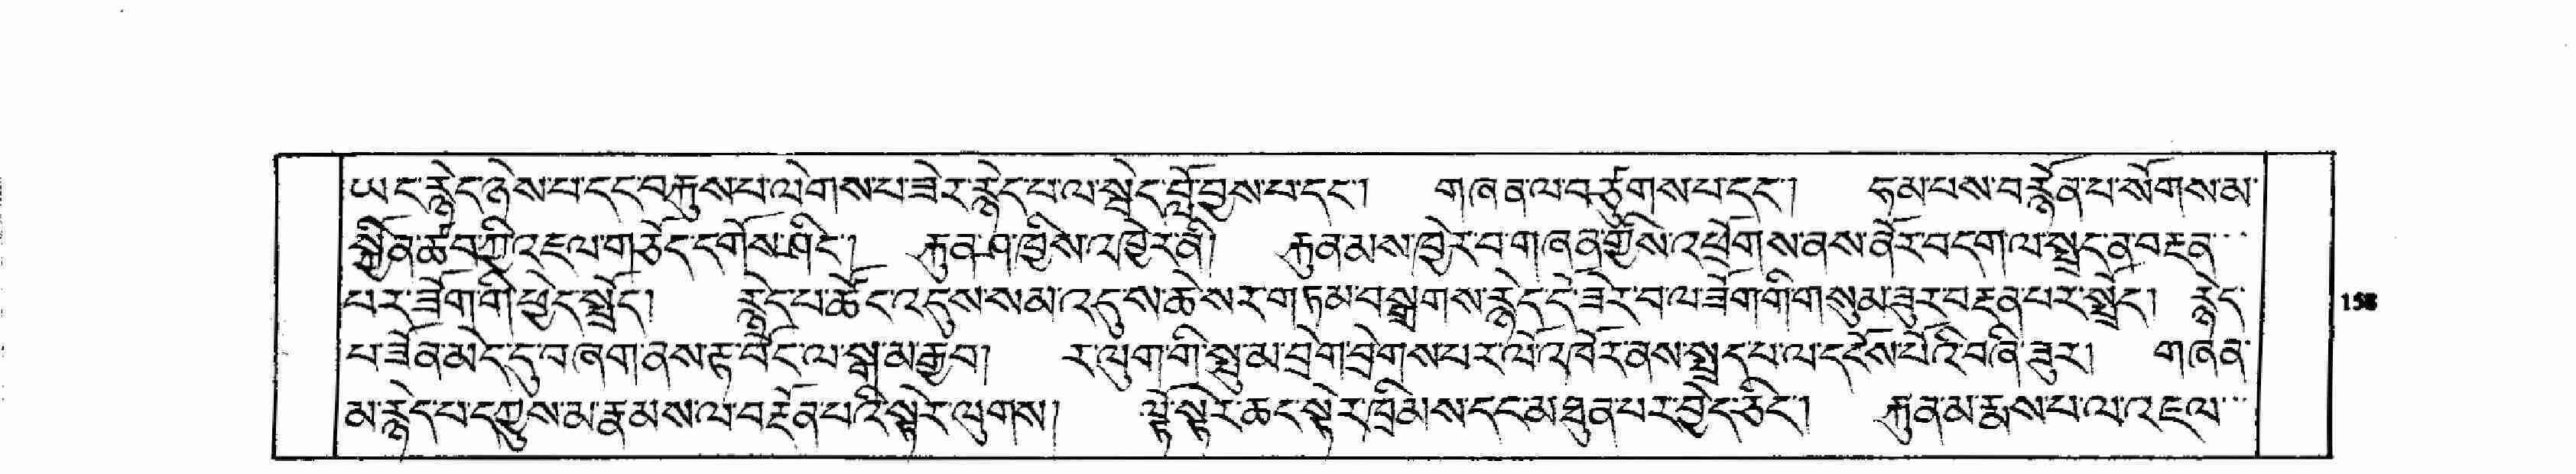 ཡང་རྙེད་ཉེས་པ་དང་བརྐུས་པ་ལེགས་པ་ཟེར་རྙེད་པ་ལ་སྦྲེང་བློ་བྱས་པ་དང་། གཞན་ལ་བཙུགས་པ་དང་། ཧམ་པས་བརྙོན་པ་སོགས་མ་
སྤྱིན་ཚབ་ཀྱི་འཇལ་གཅོད་དགོས་ཤིང་། རྐུན་ཤ་ཁྱིས་འཁྱེར་ནི། རྐུན་མས་ཁྱེར་བ་གཞན་གྱིས་འཕྲོགས་ནས་ནོར་བདག་ལ་སྤྲད་ན་བརྔན་
པར་ཟོག་གི་ཕྱེད་སྤྲོད། རྙེད་པ་ཚོང་འདུས་སམ་འདུ་ས་ཆེ་སར་གཏམ་བསྒྲགས་རྙེད་དོ་ཟེར་བ་ལ་ཟོག་གི་གསུམ་ཟུར་བརྔན་པར་སྤྲོད། རྙེད་
པ་ཟོན་མེད་དུ་བཞག་ནས་རྟ་བོང་ལ་སྒ་མ་རྒྱབ། ར་ལུག་གི་སྤུ་མ་བྲེག་བྲེགས་པར་ལོ་འཁོར་ནས་སྤྲད་པ་ལ་དངོས་པོའི་བཞི་ཟུར། གཞན་
མ་རྙེད་པ་དཀྱུས་མ་རྣམས་ལ་བརྔོན་པའི་སྟེར་ལུགས། ལྟོ་སྟེར་ཆང་སྟེར་ཁྲིམས་དང་མཐུན་པར་བྱེད་ཅིང་། རྐུན་མ་རྨས་པ་ལ་འཇལ་
158